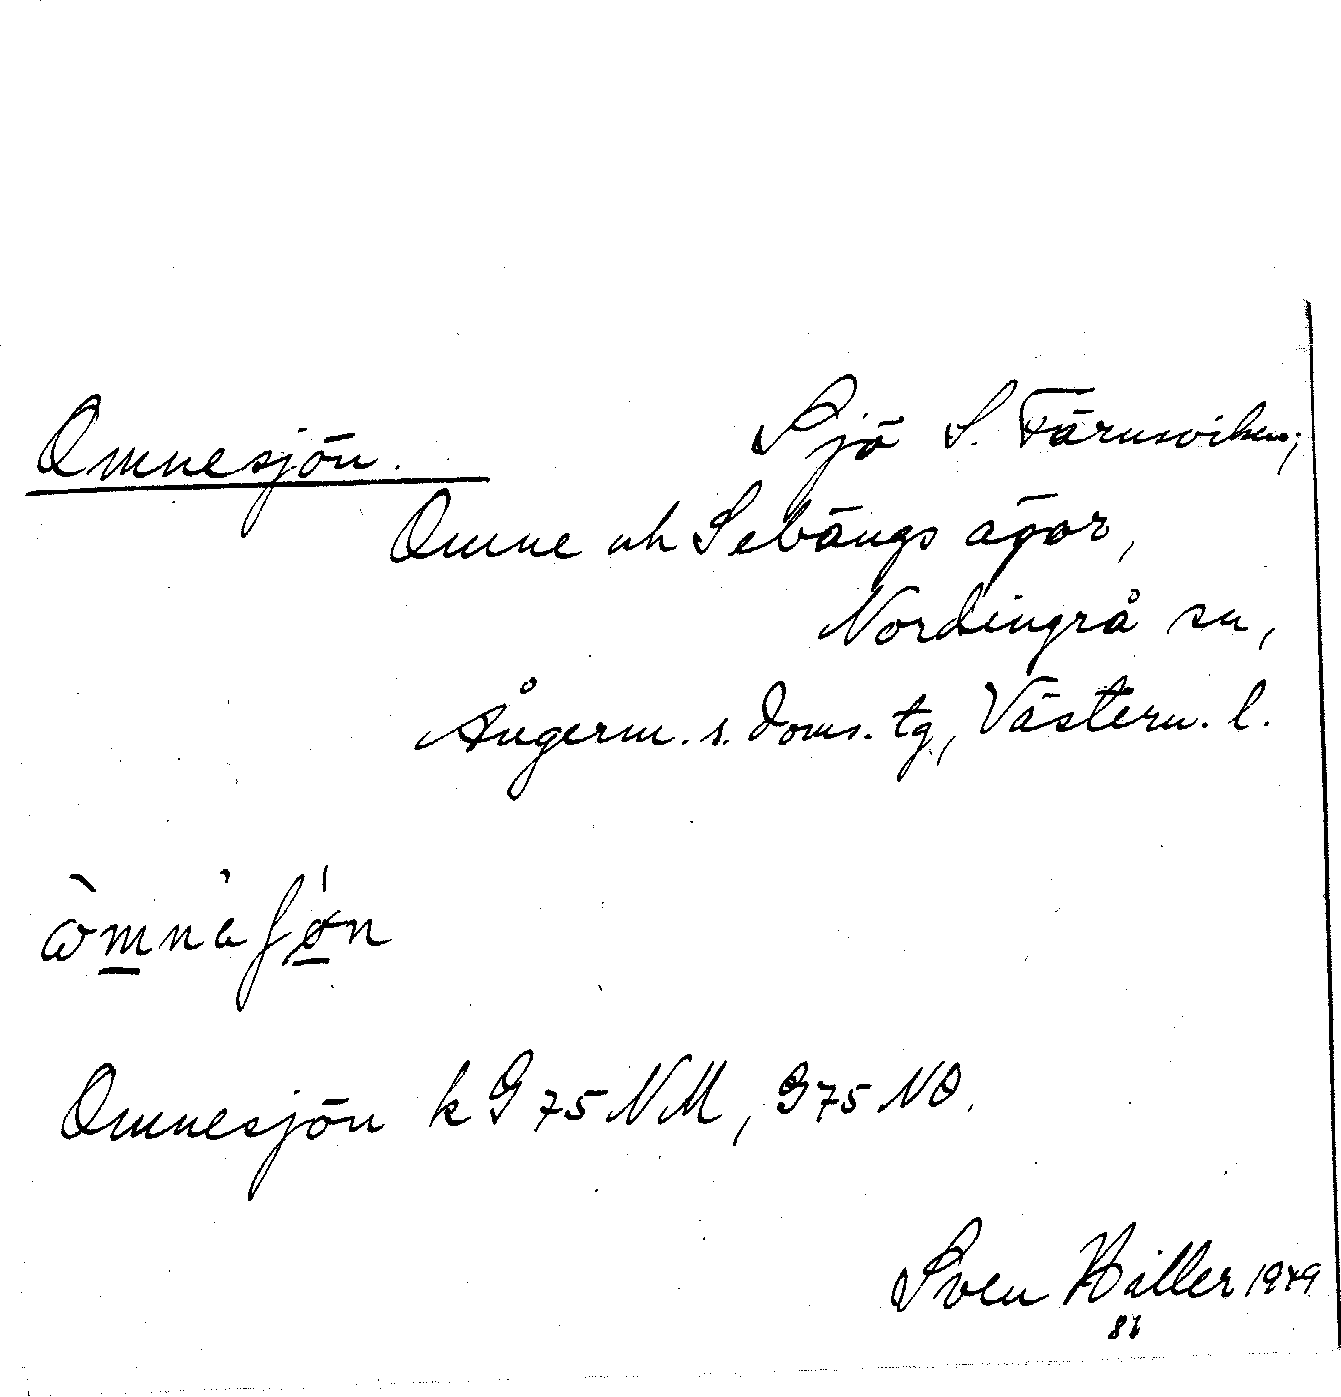 Omnesjön. Sjö S. Färnsviken;
Omne och Sebängs ägor,
Nordingrå sn,
Ångerm. s. doms. tg, Västern. l.
Omnesjön k G 75 NM, G 75 NO.
Sven Hiller 1949